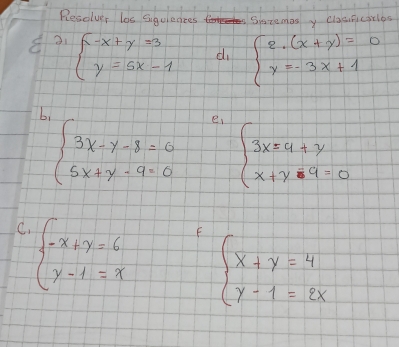 Resolver los siguientes Sistemas y clasificarlos
a) { -x + y = 3
y = 5x - 1
d) { 2.(x + y) = 0
y = -3x + 1
b) { 3x - y - 8 = 0
5x + y - 9 = 0
e) { 3x = 9 + y
x + y = 9 = 0
c) { -x + y = 6
y - 1 = x
F { x + y = 4
y - 1 = 2x